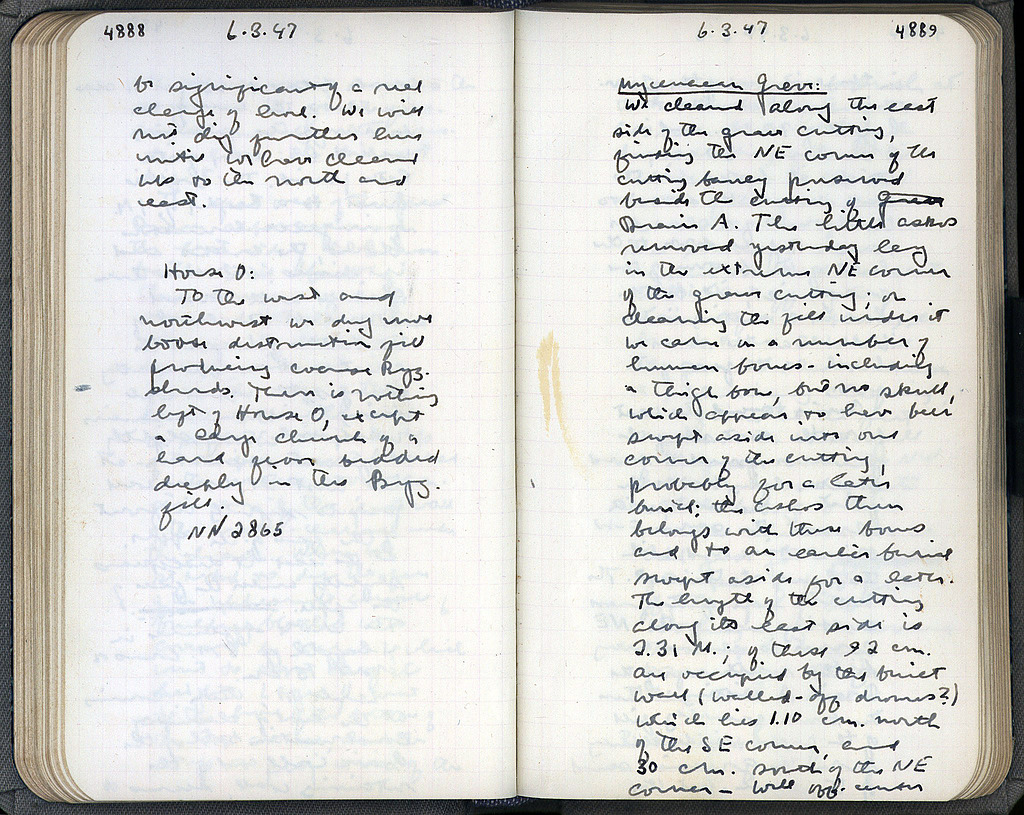 4888
6.3.47
be significant of a real
change of level. We will
not dig further here
until we have cleaned
up to the north and
east.
House O:
To the west and
northwest we dig more
loose destruction fill
producing coarse Byz.
sherds. There is nothing
left of House O, except
a large chunk of a
hard floor bedded
deeply in the Byz.
fill.
NN 2865
6.3.47
4889
Mycenaean Grave:
We cleaned along the east
side of the grave cutting,
finding the NE corner of the
cutting barely preserved
beside the cutting of Grave
Drain A. The little askos
removed yesterday lay
in the extreme NE corner
of the grave cutting; on
cleaning the fill under it
we came on a number of
human bones - including
a thigh bone, but no skull,
which appear to have been
swept aside into one
corner of the cutting,
probably for a later
burial; the askos then
belongs with these bones
and to an earlier burial
swept aside for a later.
The length of the cutting
along its east side is
2.31 M.; of these 92 cm.
are occupied by the built
wall (walled-off dromos?)
which lies 1.10 cm. north
of the SE corner, and
30 cm. south of the NE
corner - well off center